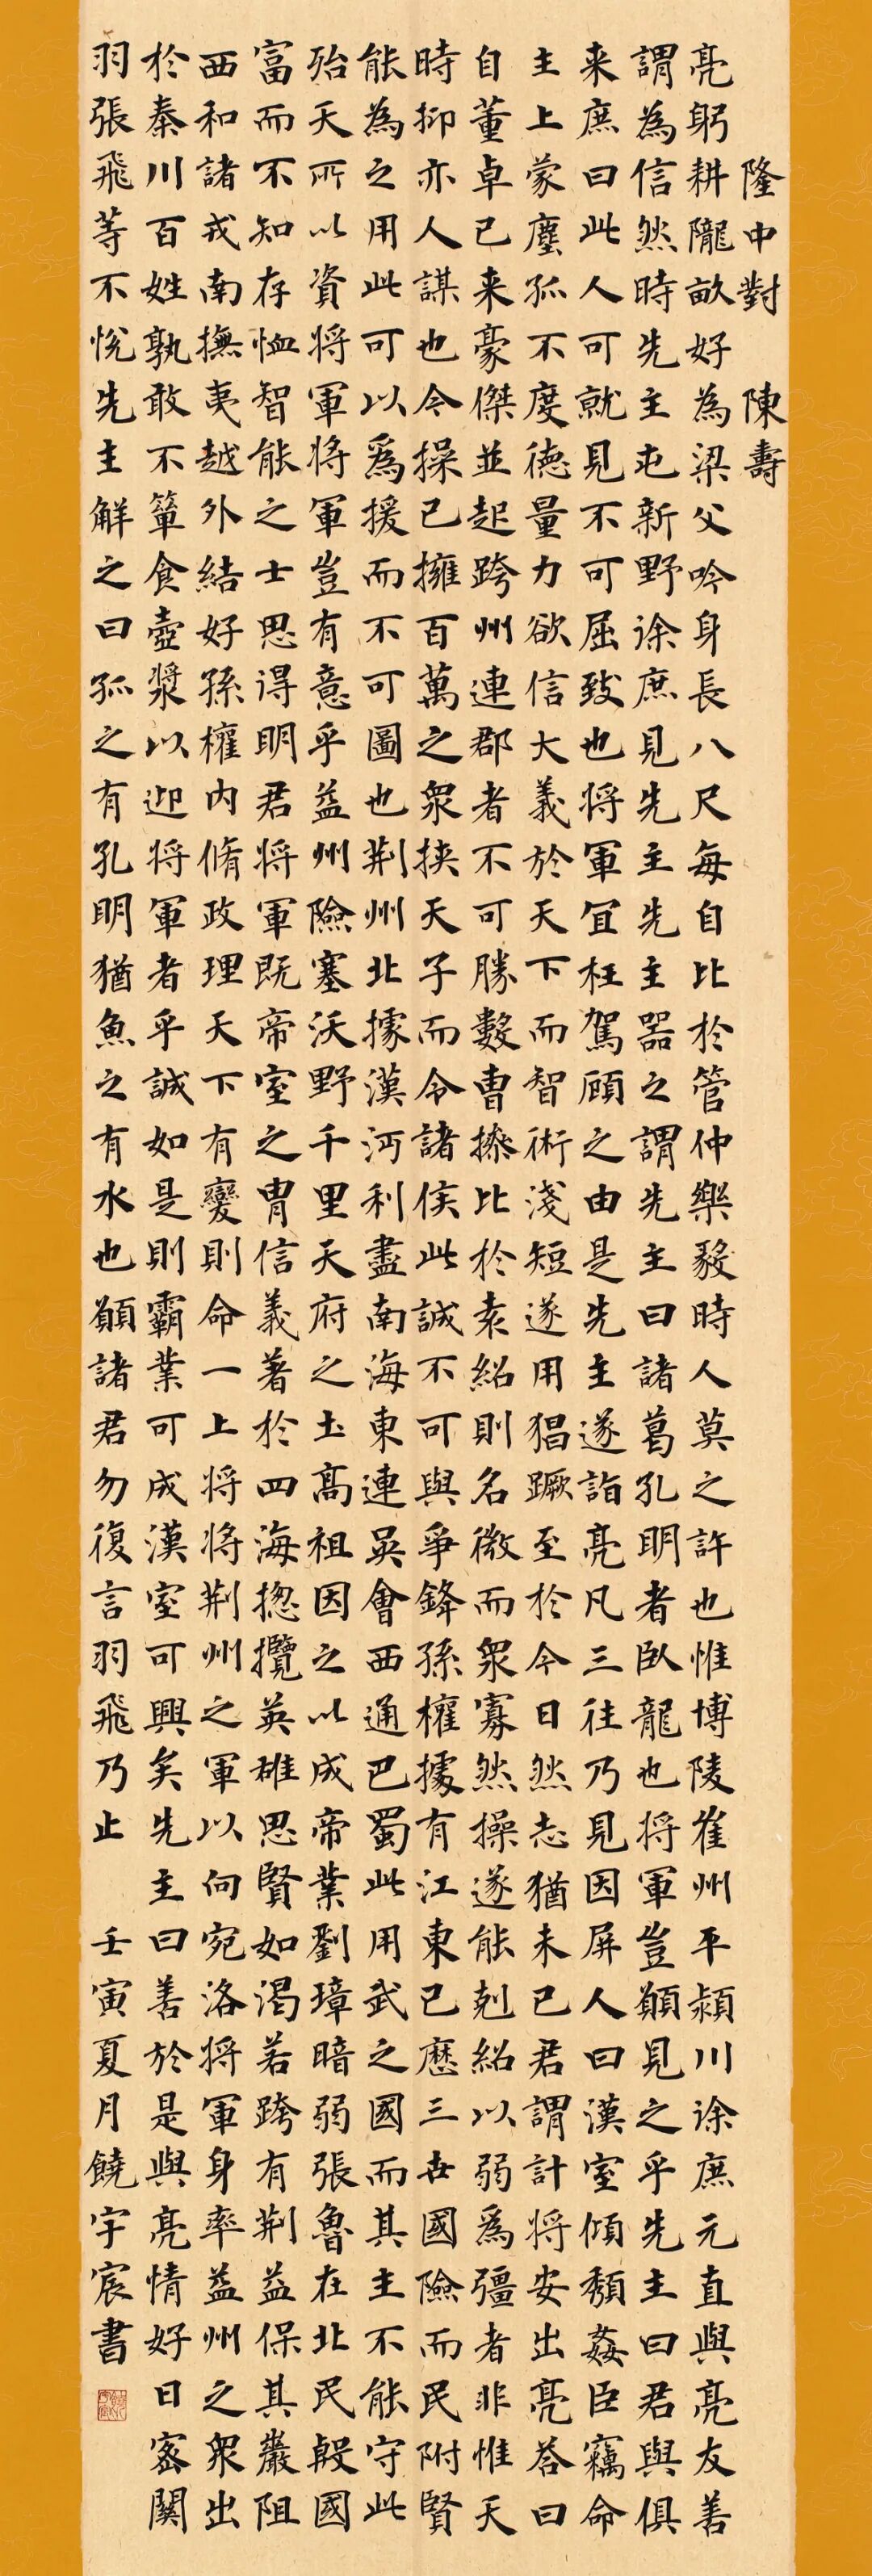 隆中對 陳壽
亮躬耕隴畝好為梁父吟身長八尺每自比於管仲樂毅時人莫之許也惟博陵崔州平潁川徐庶元直與亮友善
謂為信然時先主屯新野徐庶見先主先主器之謂先主曰諸葛孔明者臥龍也將軍豈願見之乎先主曰君與俱
来庶曰此人可就見不可屈致也將軍宜枉駕顧之由是先主遂詣亮凡三往乃見因屏人曰漢室傾頹姦臣竊命
主上蒙塵孤不度德量力欲信大義於天下而智術淺短遂用猖蹶至於今日然志猶未已君謂計將安出亮答曰
自董卓已来豪傑並起跨州連郡者不可勝數曹操比於袁紹則名微而眾寡然操遂能剋紹以弱為彊者非惟天
時抑亦人謀也今操已擁百萬之眾挾天子而令諸侯此誠不可與爭鋒孫權據有江東已歷三世國險而民附賢
能為之用此可以為援而不可圖也荆州北據漢沔利盡南海東連吳會西通巴蜀此用武之國而其主不能守此
殆天所以資將軍將軍豈有意乎益州險塞沃野千里天府之土高祖因之以成帝業劉璋暗弱張魯在北民殷國
富而不知存恤智能之士思得明君將軍既帝室之胄信義著於四海揔攬英雄思賢如渴若跨有荆益保其巖阻
西和諸戎南撫夷越外結好孫權內脩政理天下有變則命一上將將荆州之軍以向宛洛將軍身率益州之眾出
於秦川百姓孰敢不簞食壺漿以迎將軍者乎誠如是則霸業可成漢室可興矣先主曰善於是與亮情好日密關
羽張飛等不悅先主解之曰孤之有孔明猶魚之有水也願諸君勿復言羽飛乃止 壬寅夏月饒宇宸書